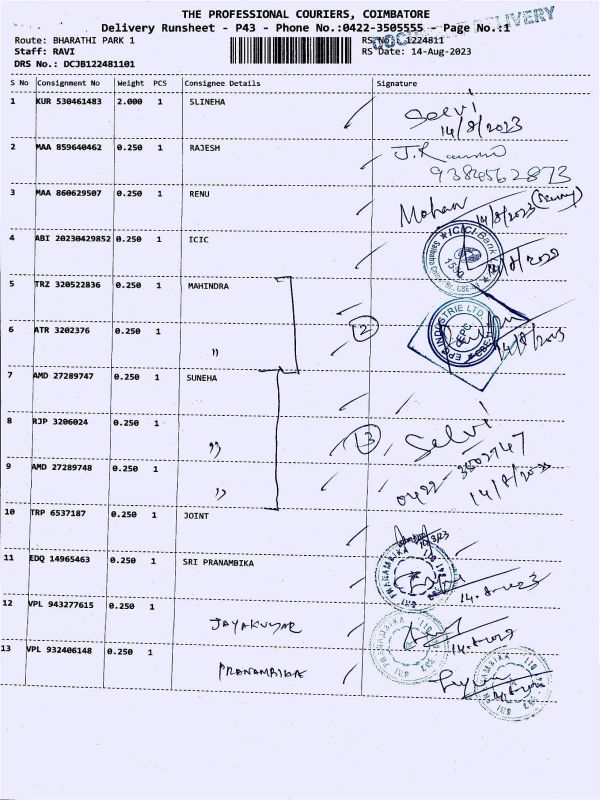 THE PROFESSIONAL COURIERS, COIMBATORE
Delivery Runsheet - P43 - Phone No.:0422-3505555 - Page No.:1
DELIVERY
Route: BHARATHI PARK 1 RS No.: 1224811
Staff: RAVI RS Date: 14-Aug-2023
DRS No.: DCJB122481101
S No Consignment No Weight PCS Consignee Details Signature
1 KUR 530461483 2.000 1 SLINEHA Selvi
14/8/2023
2 MAA 859640462 0.250 1 RAJESH
9384562873
3 MAA 860629507 0.250 1 RENU Mohan
14/8/2023
4 ABI 20230429852 0.250 1 ICIC ICICI Bank
14/8/2023
5 TRZ 320522836 0.250 1 MAHINDRA
EPR INDUSTRIE LTD
6 ATR 3202376 0.250 1 " 2
14/8/2023
7 AMD 27289747 0.250 1 SUNEHA
8 RJP 3206024 0.250 1 " 3 Selvi
9 AMD 27289748 0.250 1 " 0422-3502747
14/8/2023
10 TRP 6537187 0.250 1 JOINT
11 EDQ 14965463 0.250 1 SRI PRANAMBIKA SRI PRANAMBIKA
14-8-2023
12 VPL 943277615 0.250 1 JAYAKUMAR
SRI PRANAMBIKA
13 VPL 932406148 0.250 1 PRANAMBIKA